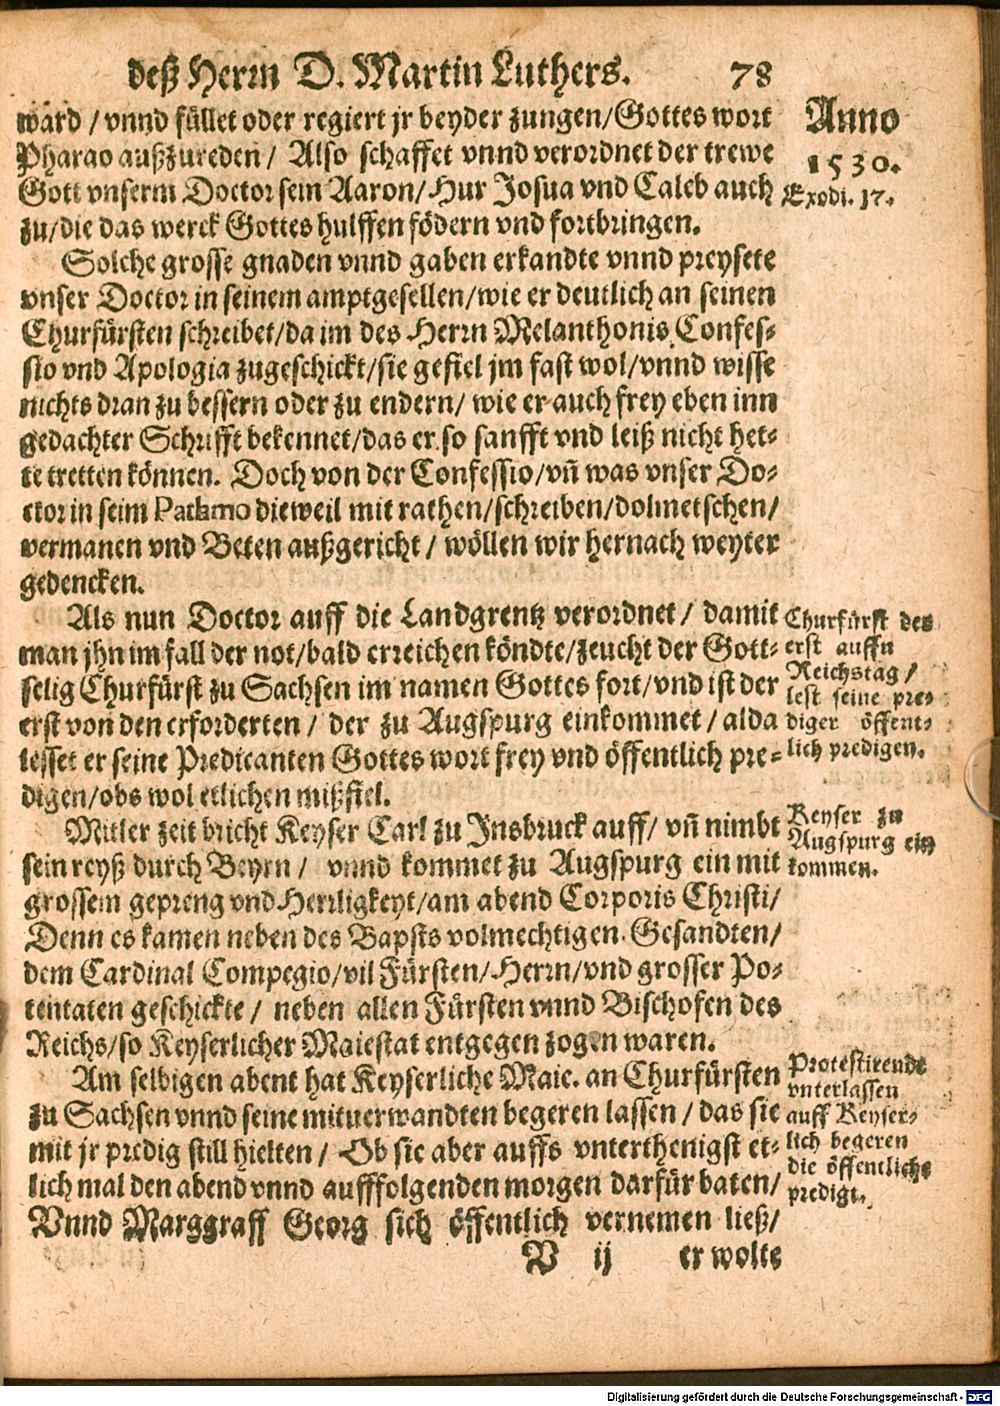 deß Herrn D. Martin Luthers. 78
ward / vnnd füllet oder regiert jr beyder zungen/Gottes wort
Pharao außzureden / Also schaffet vnnd verordnet der trewe
Gott vnserm Doctor sein Aaron/Hur Josua vnd Caleb auch
zu/die das werck Gottes hulffen födern vnd fortbringen.
Anno
1530.
Exodi. 17.
Solche grosse gnaden vnnd gaben erkandte vnnd preysete
vnser Doctor in seinem amptgesellen/wie er deutlich an seinen
Churfürsten schreibet/da im des Herrn Melanthonis Confes-
sio vnd Apologia zugeschickt/sie gefiel jm fast wol/vnnd wisse
nichts dran zu bessern oder zu endern/ wie er auch frey eben inn
gedachter Schrifft bekennet/das er so sanfft vnd leiß nicht het-
te tretten können. Doch von der Confessio/vñ was vnser Do-
ctor in seim Pathmo dieweil mit rathen/schreiben/dolmetschen/
vermanen vnd Beten außgericht / wöllen wir hernach weyter
gedencken.
Als nun Doctor auff die Landgrentz verordnet / damit
man jhn im fall der not/bald erreichen köndte/zeucht der Gott-
selig Churfürst zu Sachsen im namen Gottes fort/vnd ist der
erst von den erforderten / der zu Augspurg einkommet / alda
lesset er seine Predicanten Gottes wort frey vnd öffentlich pre-
digen/obs wol etlichen mißfiel.
Churfürst des
erst auffn
Reichstag /
lest seine pre-
diger öffent-
lich predigen.
Mitler zeit bricht Keyser Carl zu Jnsbruck auff/ vñ nimbt
sein reyß durch Beyrn / vnnd kommet zu Augspurg ein mit
grossem gepreng vnd Herrligkeyt/am abend Corporis Christi/
Denn es kamen neben des Bapsts volmechtigen Gesandten/
dem Cardinal Compegio/vil Fürsten/Herrn/vnd grosser Po-
tentaten geschickte / neben allen Fürsten vnnd Bischofen des
Reichs/so Keyserlicher Maiestat entgegen zogen waren.
Keyser zu
Augspurg ein
kommen.
Am selbigen abent hat Keyserliche Maie. an Churfürsten
zu Sachsen vnnd seine mituerwandten begeren lassen / das sie
mit jr predig still hielten / Ob sie aber auffs vnterthenigst et-
lich mal den abend vnnd aufffolgenden morgen darfür baten/
Vnnd Marggraff Georg sich öffentlich vernemen ließ/
Protestirende
vnterlassen
auff Keyser-
lich begeren
die öffentliche
predigt.
V ij er wolte
Digitalisierung gefördert durch die Deutsche Forschungsgemeinschaft - DFG